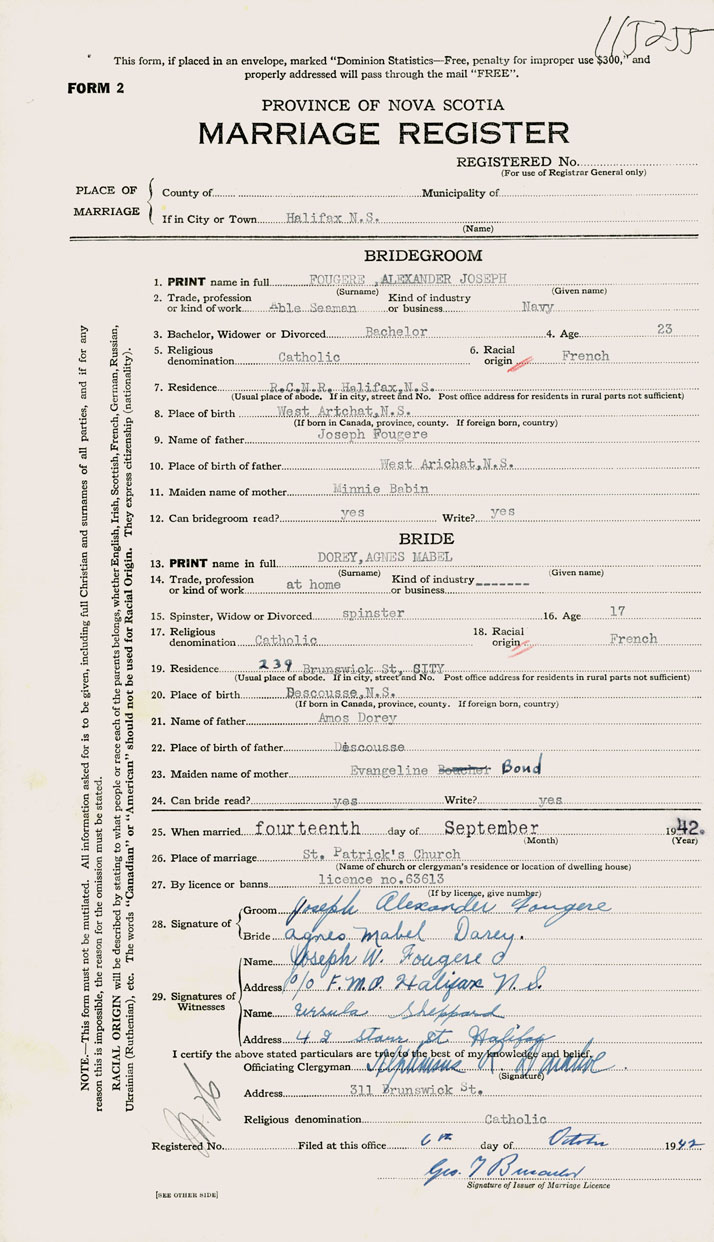 115255
This form, if placed in an envelope, marked "Dominion Statistics—Free, penalty for improper use $300," and
properly addressed will pass through the mail "FREE".
FORM 2
PROVINCE OF NOVA SCOTIA
MARRIAGE REGISTER
REGISTERED No.
(For use of Registrar General only)
PLACE OF MARRIAGE
County of Municipality of
If in City or Town Halifax N.S.
(Name)
BRIDEGROOM
1. PRINT name in full FOUGERE ,ALEXANDER JOSEPH
(Surname) (Given name)
2. Trade, profession or kind of work Able Seaman Kind of industry or business Navy
3. Bachelor, Widower or Divorced Bachelor 4. Age 23
5. Religious denomination Catholic 6. Racial origin French
7. Residence R.C.N.R. Halifax,N.S.
(Usual place of abode. If in city, street and No. Post office address for residents in rural parts not sufficient)
8. Place of birth West Artchat,N.S.
(If born in Canada, province, county. If foreign born, country)
9. Name of father Joseph Fougere
10. Place of birth of father West Arichat,N.S.
11. Maiden name of mother Minnie Babin
12. Can bridegroom read? yes Write? yes
BRIDE
13. PRINT name in full DOREY,AGNES MABEL
(Surname) (Given name)
14. Trade, profession or kind of work at home Kind of industry or business -------
15. Spinster, Widow or Divorced spinster 16. Age 17
17. Religious denomination Catholic 18. Racial origin French
19. Residence 239 Brunswick St, CITY
(Usual place of abode. If in city, street and No. Post office address for residents in rural parts not sufficient)
20. Place of birth Descousse,N.S.
(If born in Canada, province, county. If foreign born, country)
21. Name of father Amos Dorey
22. Place of birth of father Discousse
23. Maiden name of mother Evangeline Boucher Bond
24. Can bride read? yes Write? yes
25. When married fourteenth day of September 1942.
(Month) (Year)
26. Place of marriage St. Patrick's Church
(Name of church or clergyman's residence or location of dwelling house)
27. By licence or banns licence no.63613
(If by licence, give number)
28. Signature of Groom Joseph Alexander Fougere
Bride Agnes Mabel Darey.
29. Signatures of Witnesses Name Joseph W. Fougere
Address c/o F.M.O. Halifax N.S.
Name Ursula Sheppard
Address 42 Starr St Halifax
I certify the above stated particulars are true to the best of my knowledge and belief.
Officiating Clergyman
(Signature)
Address 311 Brunswick St.
Religious denomination Catholic
Registered No. Filed at this office 6th day of October 1942
Geo. T
Signature of Issuer of Marriage Licence
[SEE OTHER SIDE]
NOTE.—This form must not be mutilated. All information asked for is to be given, including full Christian and surnames of all parties, and if for any
reason this is impossible, the reason for the omission must be stated.
RACIAL ORIGIN will be described by stating to what people or race each of the parents belongs, whether English, Irish, Scottish, French, German, Russian,
Ukrainian (Ruthenian), etc. The words "Canadian" or "American" should not be used for Racial Origin. They express citizenship (nationality).